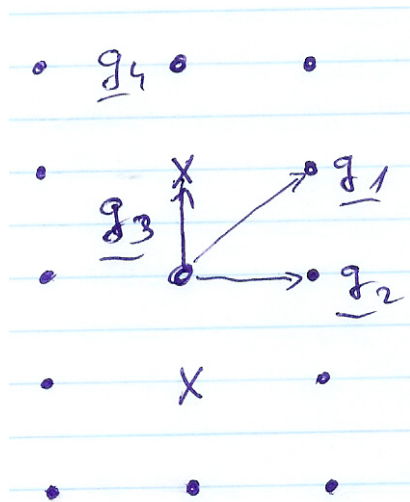 g4
x
g1
g3
g2
x